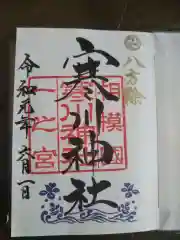 八方除
相模國
一之宮
寒川神社
令和元年六月一日